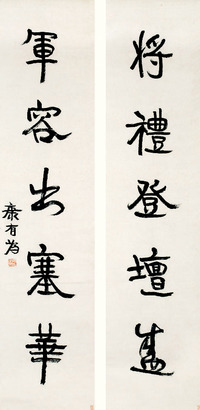 將禮登壇盛
軍容出塞華
康有為